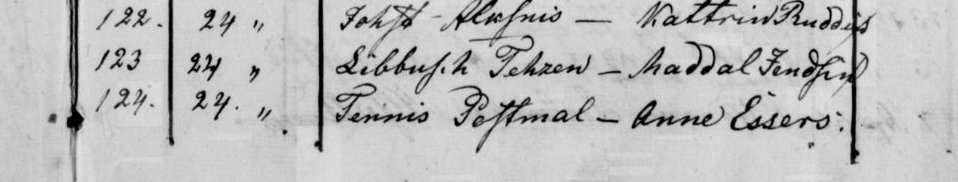 122. 24 " Alksnis — Kattrin Ruddis
123 24 " Libbusch Tehzen — Maddal
124. 24. " Tennis Pestmal — Anne Essers.